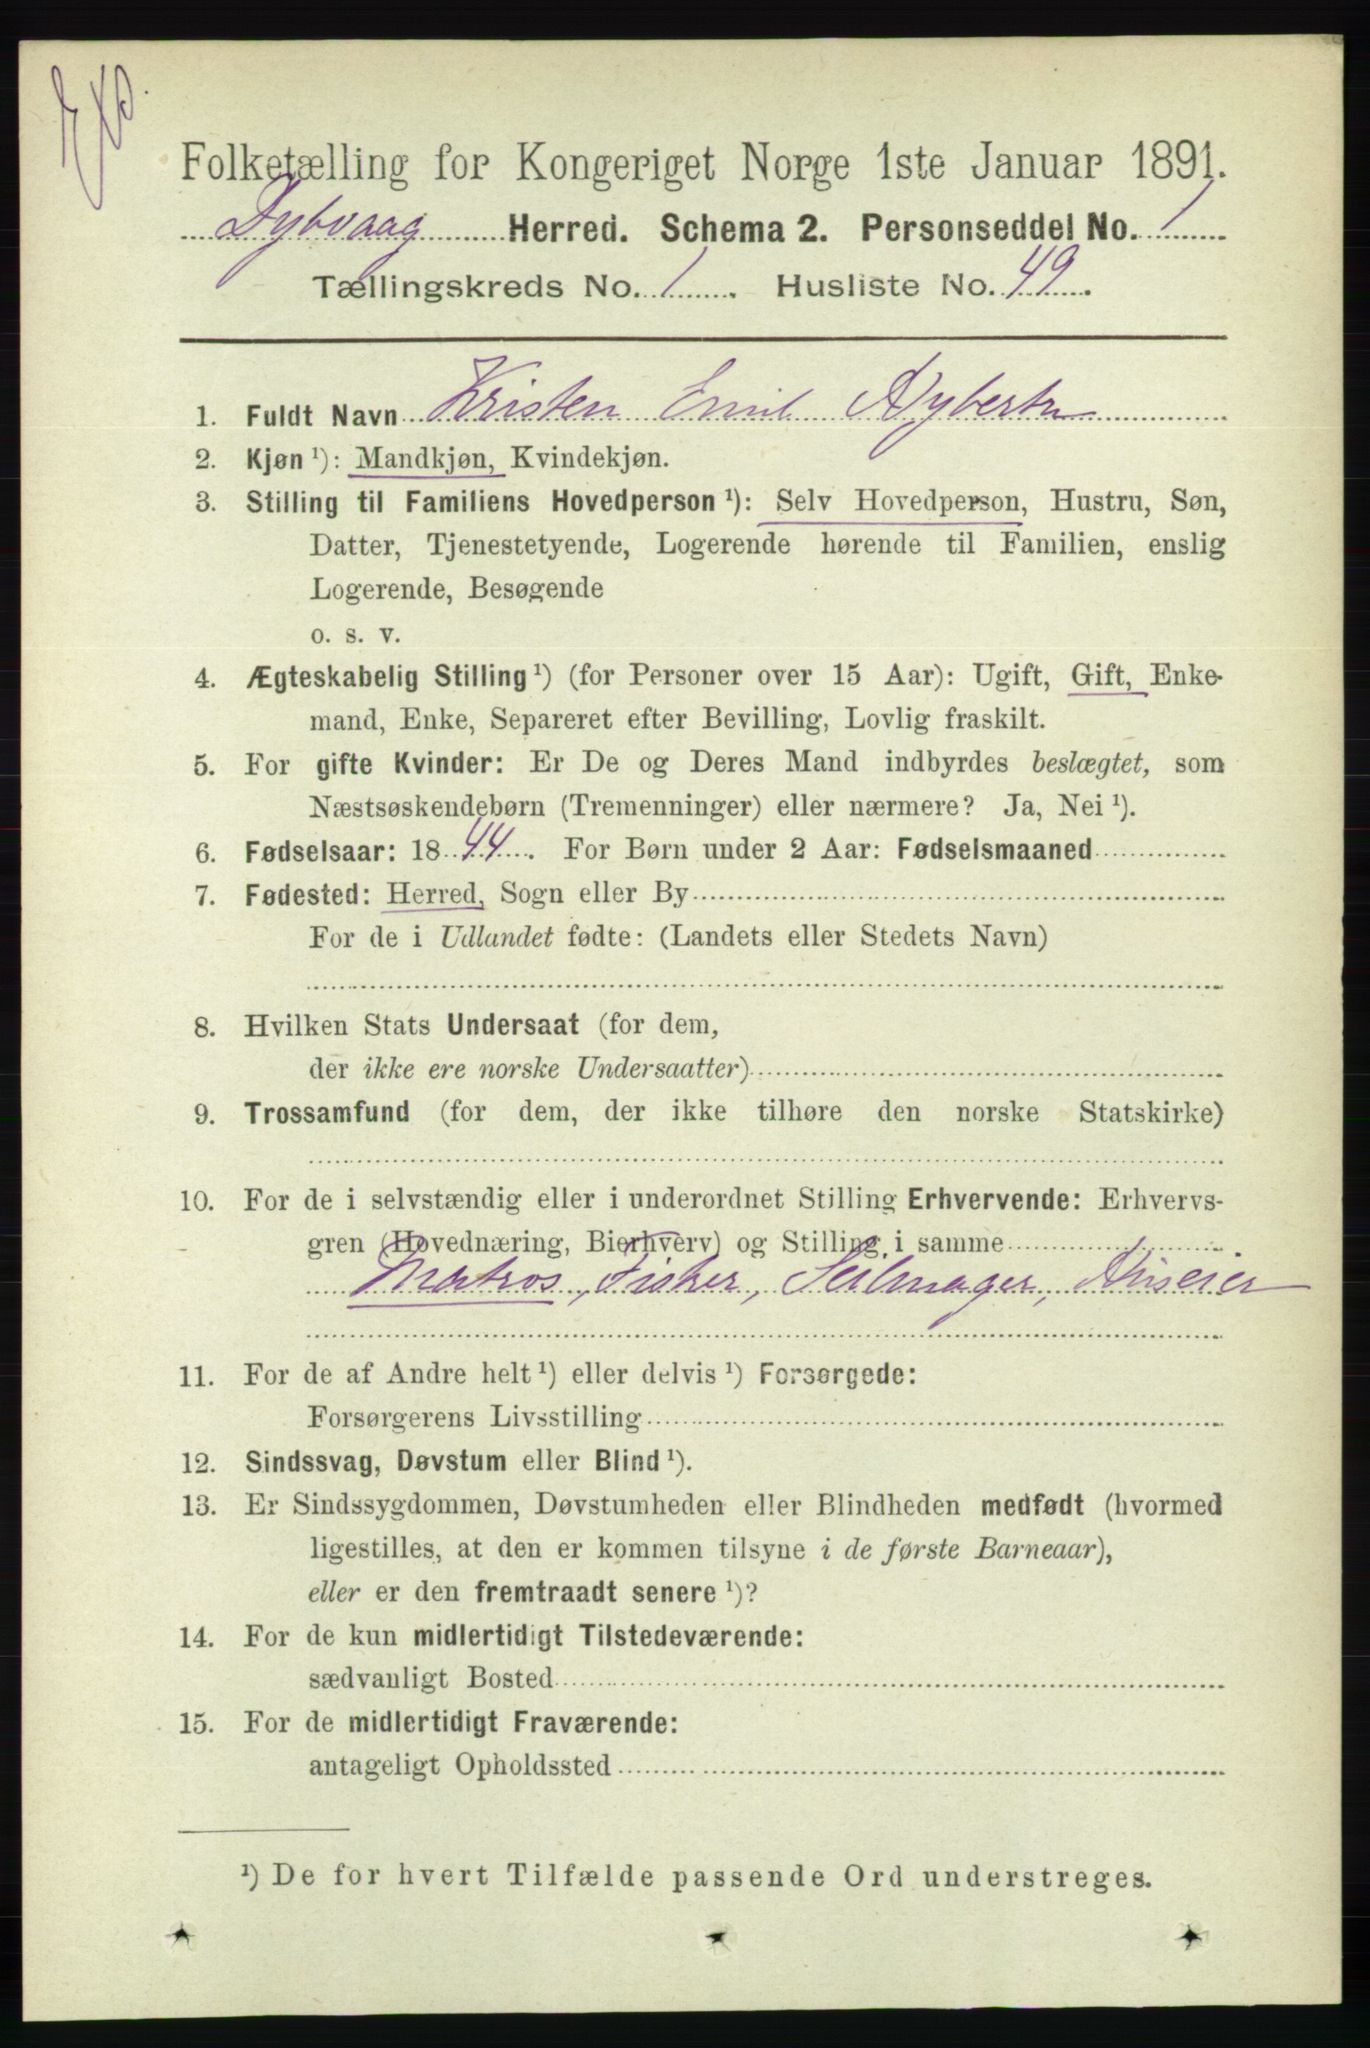 Folketælling for Kongeriget Norge 1ste Januar 1891.
Dybvaag Herred. Schema 2. Personseddel No. 1
Tællingskreds No. 1. Husliste No. 49.
1. Fuldt Navn Kristen Emil
2. Kjøn ¹): Mandkjøn, Kvindekjøn.
3. Stilling til Familiens Hovedperson ¹): Selv Hovedperson, Hustru, Søn,
Datter, Tjenestetyende, Logerende hørende til Familien, enslig
Logerende, Besøgende
o. s. v.
4. Ægteskabelig Stilling ¹) (for Personer over 15 Aar): Ugift, Gift, Enke-
mand, Enke, Separeret efter Bevilling, Lovlig fraskilt.
5. For gifte Kvinder: Er De og Deres Mand indbyrdes beslægtet, som
Næstsøskendebørn (Tremenninger) eller nærmere? Ja, Nei ¹).
6. Fødselsaar: 1844. For Børn under 2 Aar: Fødselsmaaned
7. Fødested: Herred, Sogn eller By
For de i Udlandet fødte: (Landets eller Stedets Navn)
8. Hvilken Stats Undersaat (for dem,
der ikke ere norske Undersaatter)
9. Trossamfund (for dem, der ikke tilhøre den norske Statskirke)
10. For de i selvstændig eller i underordnet Stilling Erhvervende: Erhvervs-
gren (Hovednæring, Bierhverv) og Stilling i samme
Matros, Fisker, Seilmager,
11. For de af Andre helt ¹) eller delvis ¹) Forsørgede:
Forsørgerens Livsstilling
12. Sindssvag, Døvstum eller Blind ¹).
13. Er Sindssygdommen, Døvstumheden eller Blindheden medfødt (hvormed
ligestilles, at den er kommen tilsyne i de første Barneaar),
eller er den fremtraadt senere ¹)?
14. For de kun midlertidigt Tilstedeværende:
sædvanligt Bosted
15. For de midlertidigt Fraværende:
antageligt Opholdssted
¹) De for hvert Tilfælde passende Ord understreges.